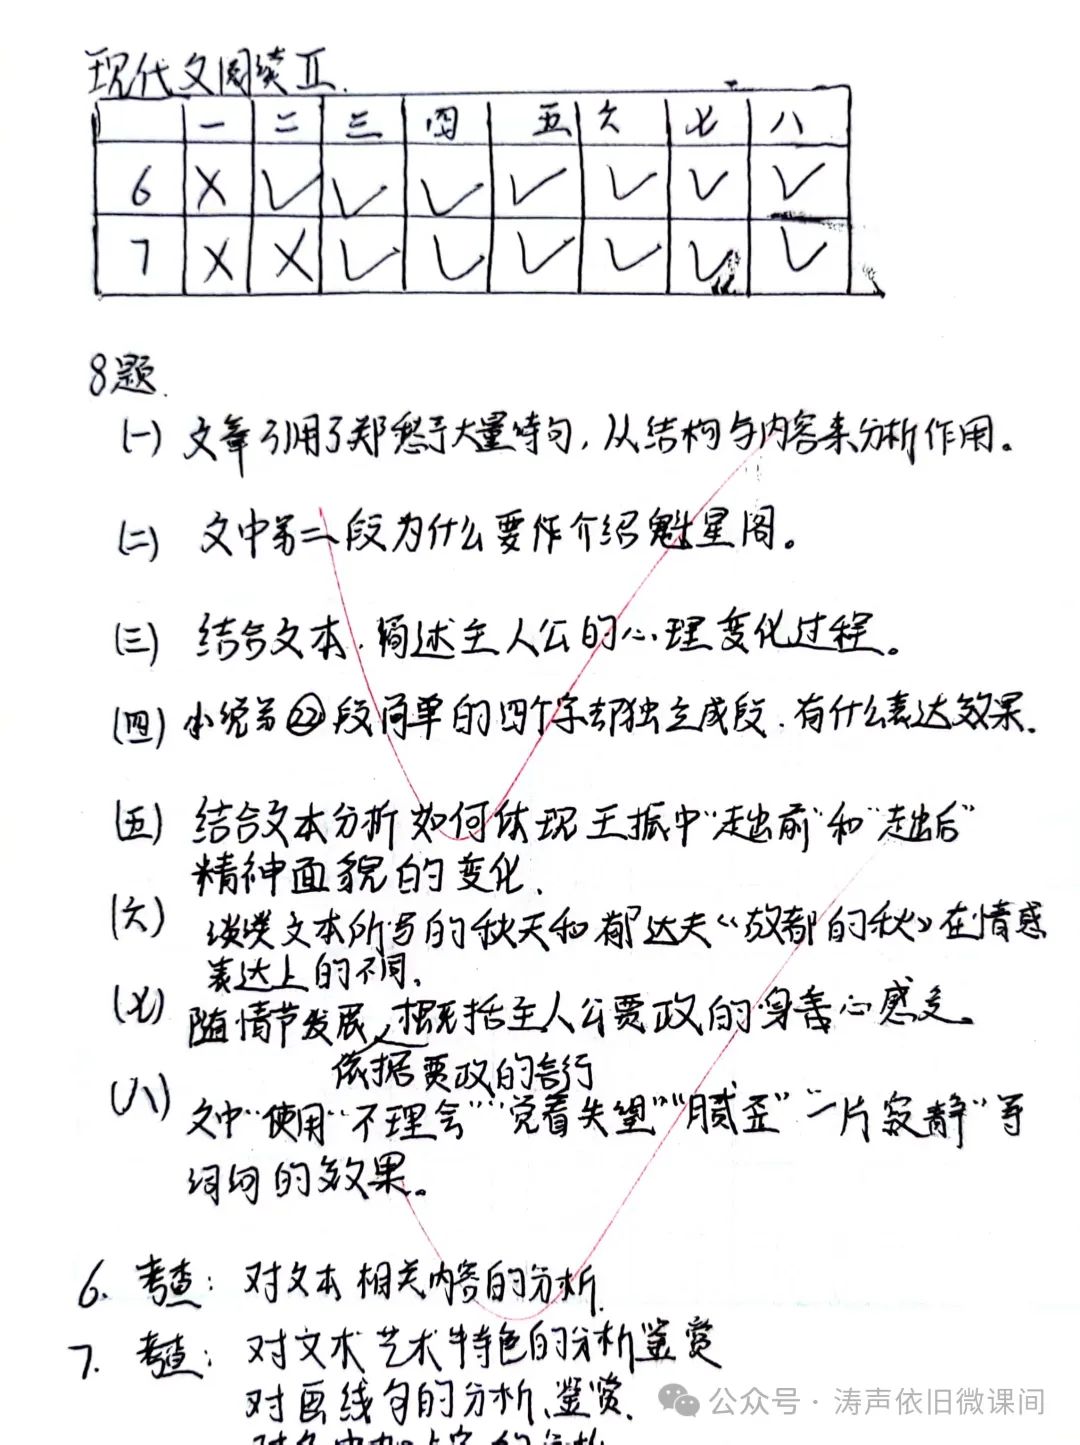 现代文阅读Ⅱ.
一 二 三 四 五 六 七 八
6 X ✓ ✓ ✓ ✓ ✓ ✓ ✓
7 X X ✓ ✓ ✓ ✓ ✓ ✓
8题.
(一) 文章引用了郑愁予大量诗句,从结构与内容来分析作用。
(二) 文中第二段为什么要作介绍魁星阁。
(三) 结合文本.简述主人公的心理变化过程。
(四) 小说第㉒段简单的四个字却独立成段.有什么表达效果.
(五) 结合文本分析如何体现王振中"走出前"和"走出后"
精神面貌的变化.
(六) 谈谈文本所写的秋天和郁达夫《故都的秋》在情感
表达上的不同.
(七) 随情节发展,概括主人公贾政的身善心感受.
依据贾政的言行
(八) 文中"使用"不理会""觉着失望""腻歪""一片寂静"等
词句的效果。
6. 考查: 对文本相关内容的分析.
7. 考查: 对文术艺术特色的分析鉴赏
对画线句的分析、鉴赏.
公众号·涛声依旧微课间